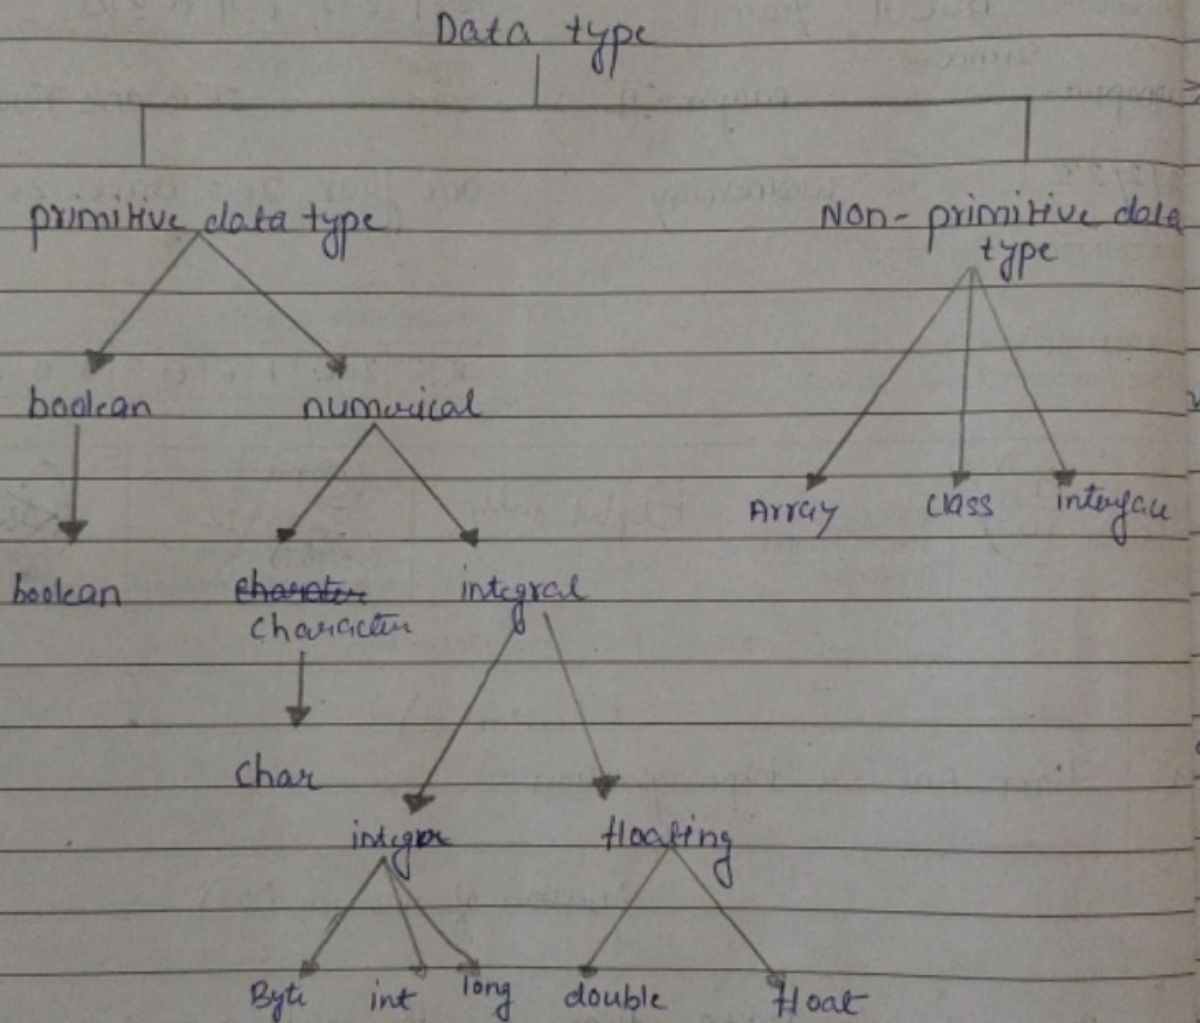 Data type
primitive data type
Non-primitive data
type
boolean
numerical
Array
class
interface
boolean
charater
integral
character
char
integer
floating
Byte
int
long
double
float